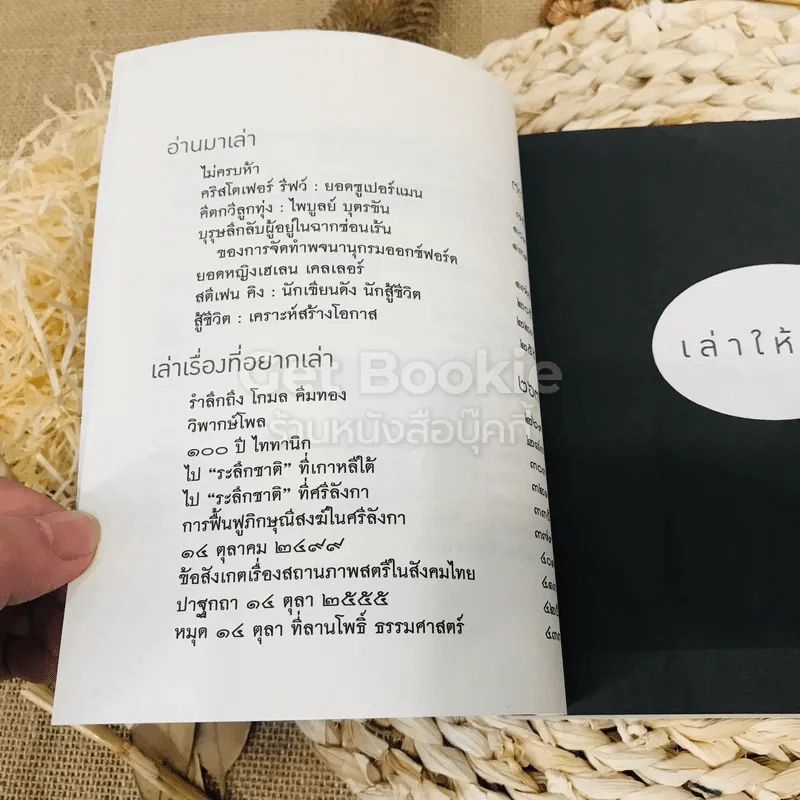 อ่านมาเล่า
ไม่ครบห้า
คริสโตเฟอร์ รีฟว์ : ยอดซูเปอร์แมน
คีตกวีลูกทุ่ง : ไพบูลย์ บุตรขัน
บุรุษลึกลับผู้อยู่ในฉากซ่อนเร้น
ของการจัดทำพจนานุกรมออกซ์ฟอร์ด
ยอดหญิงเฮเลน เคลเลอร์
สตีเฟน คิง : นักเขียนดัง นักสู้ชีวิต
สู้ชีวิต : เคราะห์สร้างโอกาส
เล่าเรื่องที่อยากเล่า
รำลึกถึง โกมล คีมทอง
วิพากษ์โพล
๑๐๐ ปี ไททานิก
ไป “ระลึกชาติ” ที่เกาหลีใต้
ไป “ระลึกชาติ” ที่ศรีลังกา
การฟื้นฟูภิกษุณีสงฆ์ในศรีลังกา
๑๔ ตุลาคม ๒๔๙๙
ข้อสังเกตเรื่องสถานภาพสตรีในสังคมไทย
ปาฐกถา ๑๔ ตุลา ๒๕๕๕
หมุด ๑๔ ตุลา ที่ลานโพธิ์ ธรรมศาสตร์
เล่าให้
Get Bookie
ร้านหนังสือบุ๊คกี้